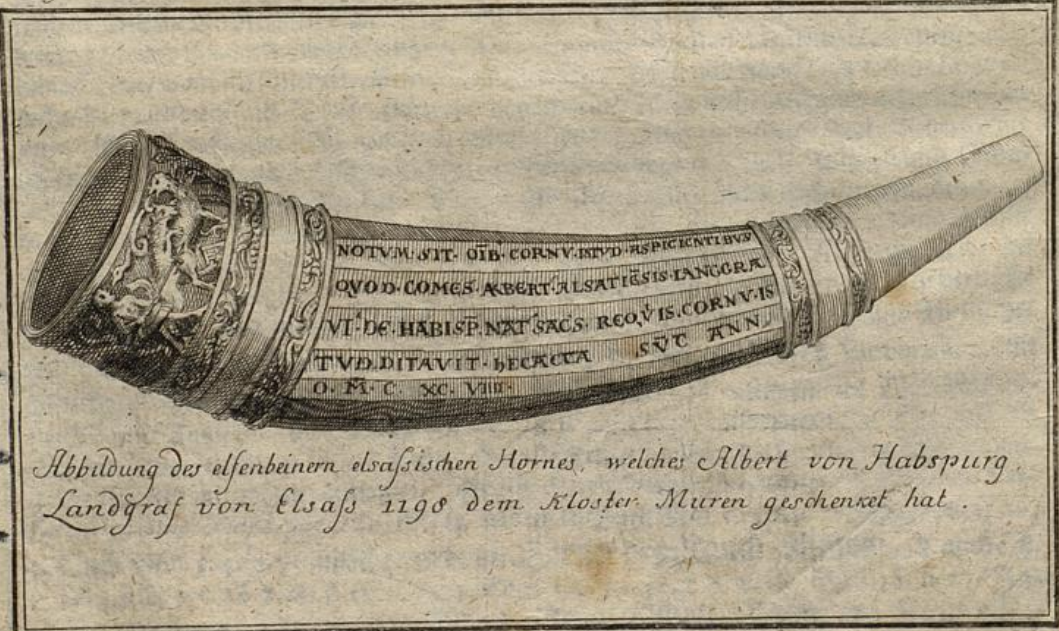 NOTVM·SIT·OĪB·CORNV·ISTVD·ASPICIENTIBVS
QVOD·COMES·ALBERT·ALSATIĒSIS·LANGGRA
VI·DE·HABISP̄·NAT·SACS·REQVIS·CORNV·IS
TVD·DITAVIT·hECACTA SV̄T ANN
O·M̄·C·XC·VIIII·
Abbildung des elfenbeinern elsaßischen Hornes, welches Albert von Habspurg,
Landgraf von Elsaß 1198 dem Kloster Muren geschenket hat.